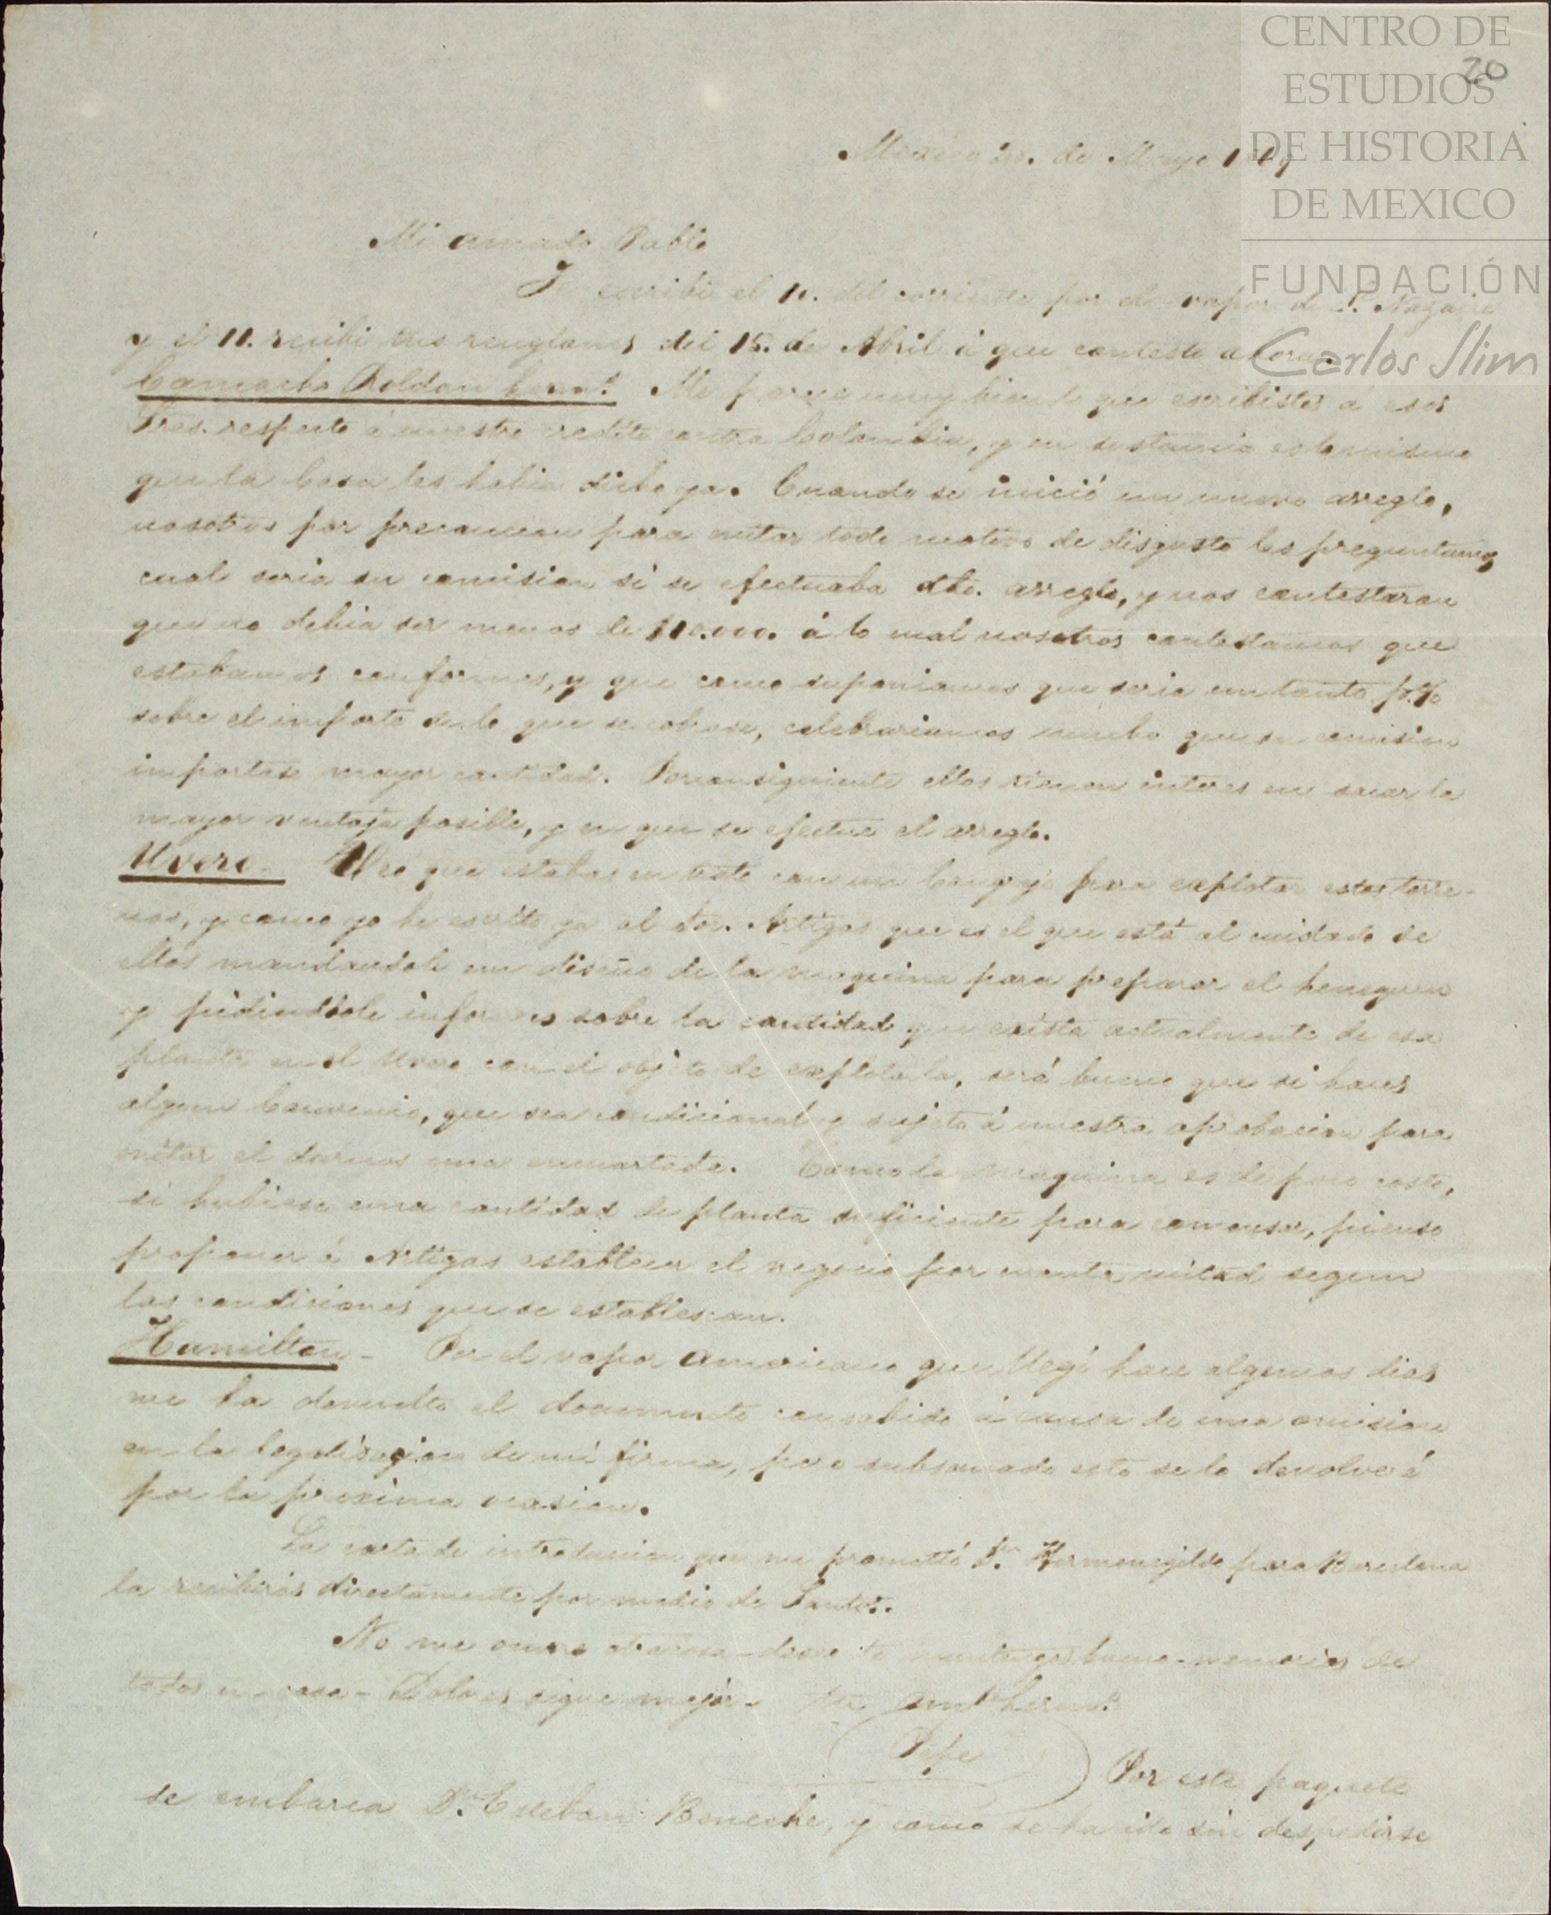 CENTRO DE
ESTUDIOS
DE HISTORIA
DE MEXICO
FUNDACIÓN
Carlos Slim
20
Mexico de Mayo
Mi amado Pablo
Te escribi el 10. del corriente por el vapor de St. Nazaire
y el 11. recibi tus renglones del 15. de Abril á que contesto ahora.
Camacho Roldan herms. Me parece muy bien lo que escribistes a esos
Sres. respecto á nuestro credito contra Colombia, y en sustancia es lo mismo
que la Casa les habia dicho ya. Cuando se inició un nuevo arreglo,
nosotros por precaucion para evitar todo motivo de disgusto les preguntamos
cual seria su comision si se efectuaba dho. arreglo, y nos contestaron
que no debia ser menos de á lo cual nosotros contestamos que
estabamos conformes, y que como suponiamos que seria un tanto p.%
sobre el importe de lo que se cobrase, celebrariamos mucho que su comision
importase mayor cantidad. Por consiguiente ellos tienen interes en sacar la
mayor ventaja posible, y en que se efectue el arreglo.
Uvero- Veo que estabas en trato con un para explotar estos terre-
nos, y como yo he escrito ya al Sor. Artigas que es el que está al cuidado de
ellos mandandole un diseño de la maquina para preparar el henequen
y pidiendole informes sobre la cantidad que exista actualmente de esa
planta en el Uvero con el objeto de explotarla, será bueno que si haces
algun Convenio, que sea condicional y sujeto á nuestra aprobacion para
evitar el darnos una encuartada. Como la maquina es de poco costo,
si hubiese una cantidad de planta suficiente para comensar, pienso
proponer á Artigas establecer el negocio por cuenta mitad segun
las condiciones que se establescan.
Hamilton- Por el vapor americano que llegó hace algunos dias
me ha devuelto el documento consabido á causa de una omision
en la legalizacion de mi firma, pero subsanado esto se lo devolveré
por la proxima ocasion.
La carta de introduccion que me prometió Dn. Hermenegildo para Barcelona
la recibirás directamente por medio de Santos.
No me ocurre otra cosa-deseo te mantengas bueno-memorias de
todos en casa- Dolores sigue mejor- tu amte. hermo.
Pepe
Por este paquete
se embarca Dn. Esteban Benecke, y como se ha ido sin despedirse